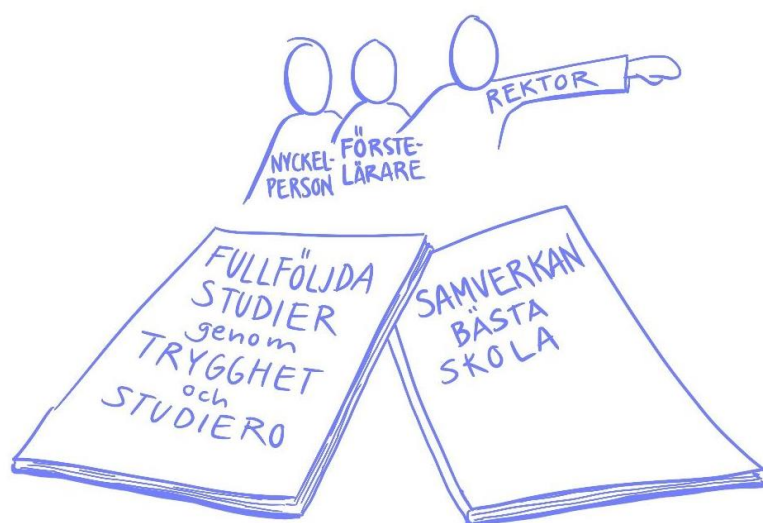 REKTOR
NYCKEL-
PERSON
FÖRSTE-
LÄRARE
FULLFÖLJDA
STUDIER
genom
TRYGGHET
och
STUDIERO
SAMVERKAN
BÄSTA
SKOLA